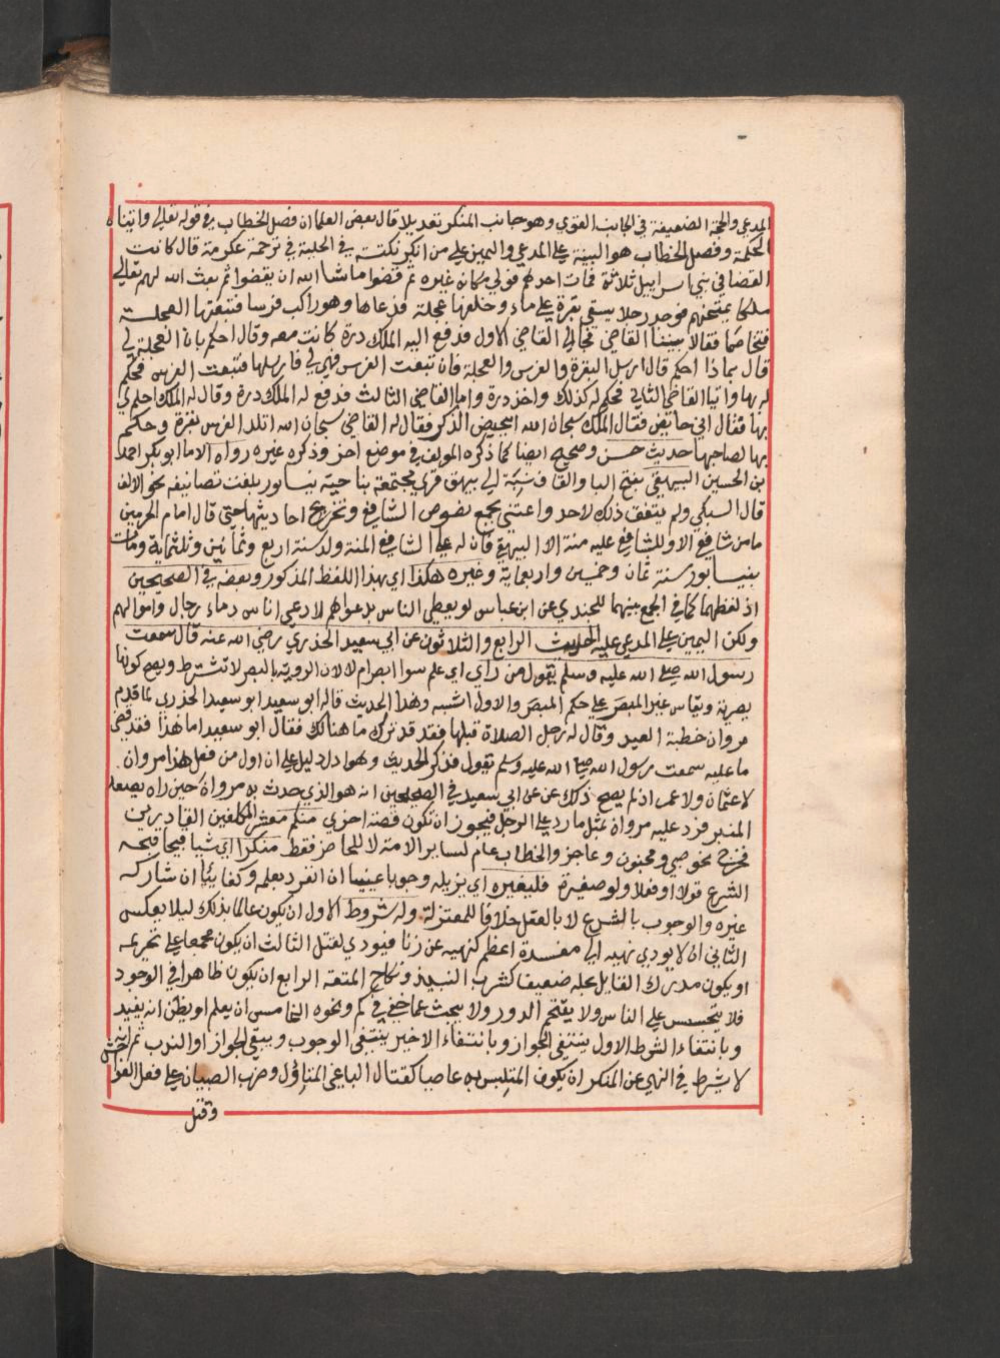 المدعي والحجة الضعيفة في الجانب القوي وهو جانب المنكر تعديلا قال بعض العلما ان فصل الخطاب في قوله تعالى واتيناه
الحكمة وفصل الخطاب هو البينة على المدعي واليمين على من انكر نكتة في الحلية في ترجمة عكرمة قال كانت
القضا في بني اسراييل ثلاثة فمات احدهم فولي مكانه غيره ثم قضوا ما شا الله ان يقضوا ثم بعث الله لهم تعالى
ملكا يمتحنهم فوجد رجلا يسقي بقرة على ماء وخلفها عجلة فدعاها وهو راكب فرسا فتبعتها العجلة
فتخاصما فقالا بيننا القاضي فجا الى القاضي الاول فدفع اليه الملك درة كانت معه وقال احكم بان العجلة لي
قال بماذا احكم قال ارسل البقرة والفرس والعجلة فان تبعت الفرس فهي لي فارسلها فتبعت الفرس فحكم
له بها واتيا القاضي الثاني فحكم له كذلك واخذ درة واما القاضي الثالث فدفع له الملك درة وقال له الملك احكم لي
بها فقال اني حايض فقال الملك سبحان الله ايحيض الذكر فقال له القاضي سبحان الله اتلد الفرس بقرة وحكم
بها لصاحبها حديث حسن وصحيح ايضا كما ذكره المولف في موضع اخر وذكره غيره رواه الاما ابو بكر احمد
بن الحسين البيهقي بفتح البا والقاف نسبة الي بيهق قري مجتمعة بناحية نيسابور بلغت تصانيفه نحو الالف
قال السبكي ولم يتفق ذلك لاحد واعتني بجمع نصوص الشافعي وتخريج احاديثها حتي قال امام الحرمين
ما من شافعي الا وللشافعي عليه منة الا البيهقي فان له علي الشافعي المنة ولد سنة اربع وثمانين وثلثماية ومات
بنيسابور سنة ثمان وخمسين واربعماية وغيره هكذا اي بهذا اللفظ المذكور وبعضه في الصحيحين
اذ لفظهما كما في الجمع بينهما للجندي عن ابن عباس لو يعطي الناس بدعواهم لادعي اناس دماء رجال واموالهم
ولكن اليمين على المدعي عليه الحديث الرابع والثلاثون عن ابي سعيد الخدري رضي الله عنه قال سمعت
رسول الله صلى الله عليه وسلم يقول من راي اي علم سوا ابصرام لا لان الروية بالبصر لا تشترط ويصح كونها
بصرية ويقاس غير المبصر علي حكم المبصر والاول اشبه وهذا الحديث قاله ابو سعيد ابو سعيد الخدري لما قدم
مروان خطبة العيد وقال له رجل الصلاة قبلها فقد قد ترك ما هنالك فقال ابو سعيد اما هذا فقد قضي
ما عليه سمعت رسول الله صلى الله عليه وسلم تقول فذكر الحديث وهو ادل دليل علي ان اول من فعل هذا مروان
لا عثمان ولا عمر اذ لم يصح ذلك عن عن ابي سعيد في الصحيحين انه هو الذي حدث به مروان حين راه يصعد
المنبر فرد عليه مروان بمثل ما رد علي الرجل فيجوز ان تكون قصة اخري منكم معشر المكلفين القادرين
فخرج نحو صبي ومجنون وعاجز والخطاب عام لساير الامة لا للحاضر فقط منكرا اي شيا قبيحا قبحه
الشرع قولا او فعلا ولو صغيرة فليغيره اي يزيله وجوبا عينيا ان انفرد بعلمه وكفايئا ان شاركه
غيره والوجوب بالشرع لا بالعقل خلافا للمعتزلة وله شروط الاول ان يكون عالما بذلك ليلا يعكس
الثاني ان لا يودي نهيه الي مفسدة اعظم كنهيه عن زنا فيودي لقتل الثالث ان يكون مجمعا علي تحريمه
او يكون مدرك القايل بحله ضعيفا كشرب النبيذ ونكاح المتعة الرابع ان يكون ظاهرا في الوجود
فلا يتجسس علي الناس ولا يقتحم الدور ولا يبحث عما خفي في كم ونحوه الخامس ان يعلم او يظن انه يفيد
وبانتفاء الشرط الاول ينتفي الجواز وبانتفاء الاخير ينتفي الوجوب ويبقي الجواز او الندب ثم انه
لا يشرط في النهي عن المنكر ان يكون المتلبس به عاصيا كقتال الباغي المتاؤل وضرب الصبيان علي فعل الفواحش
وقتل